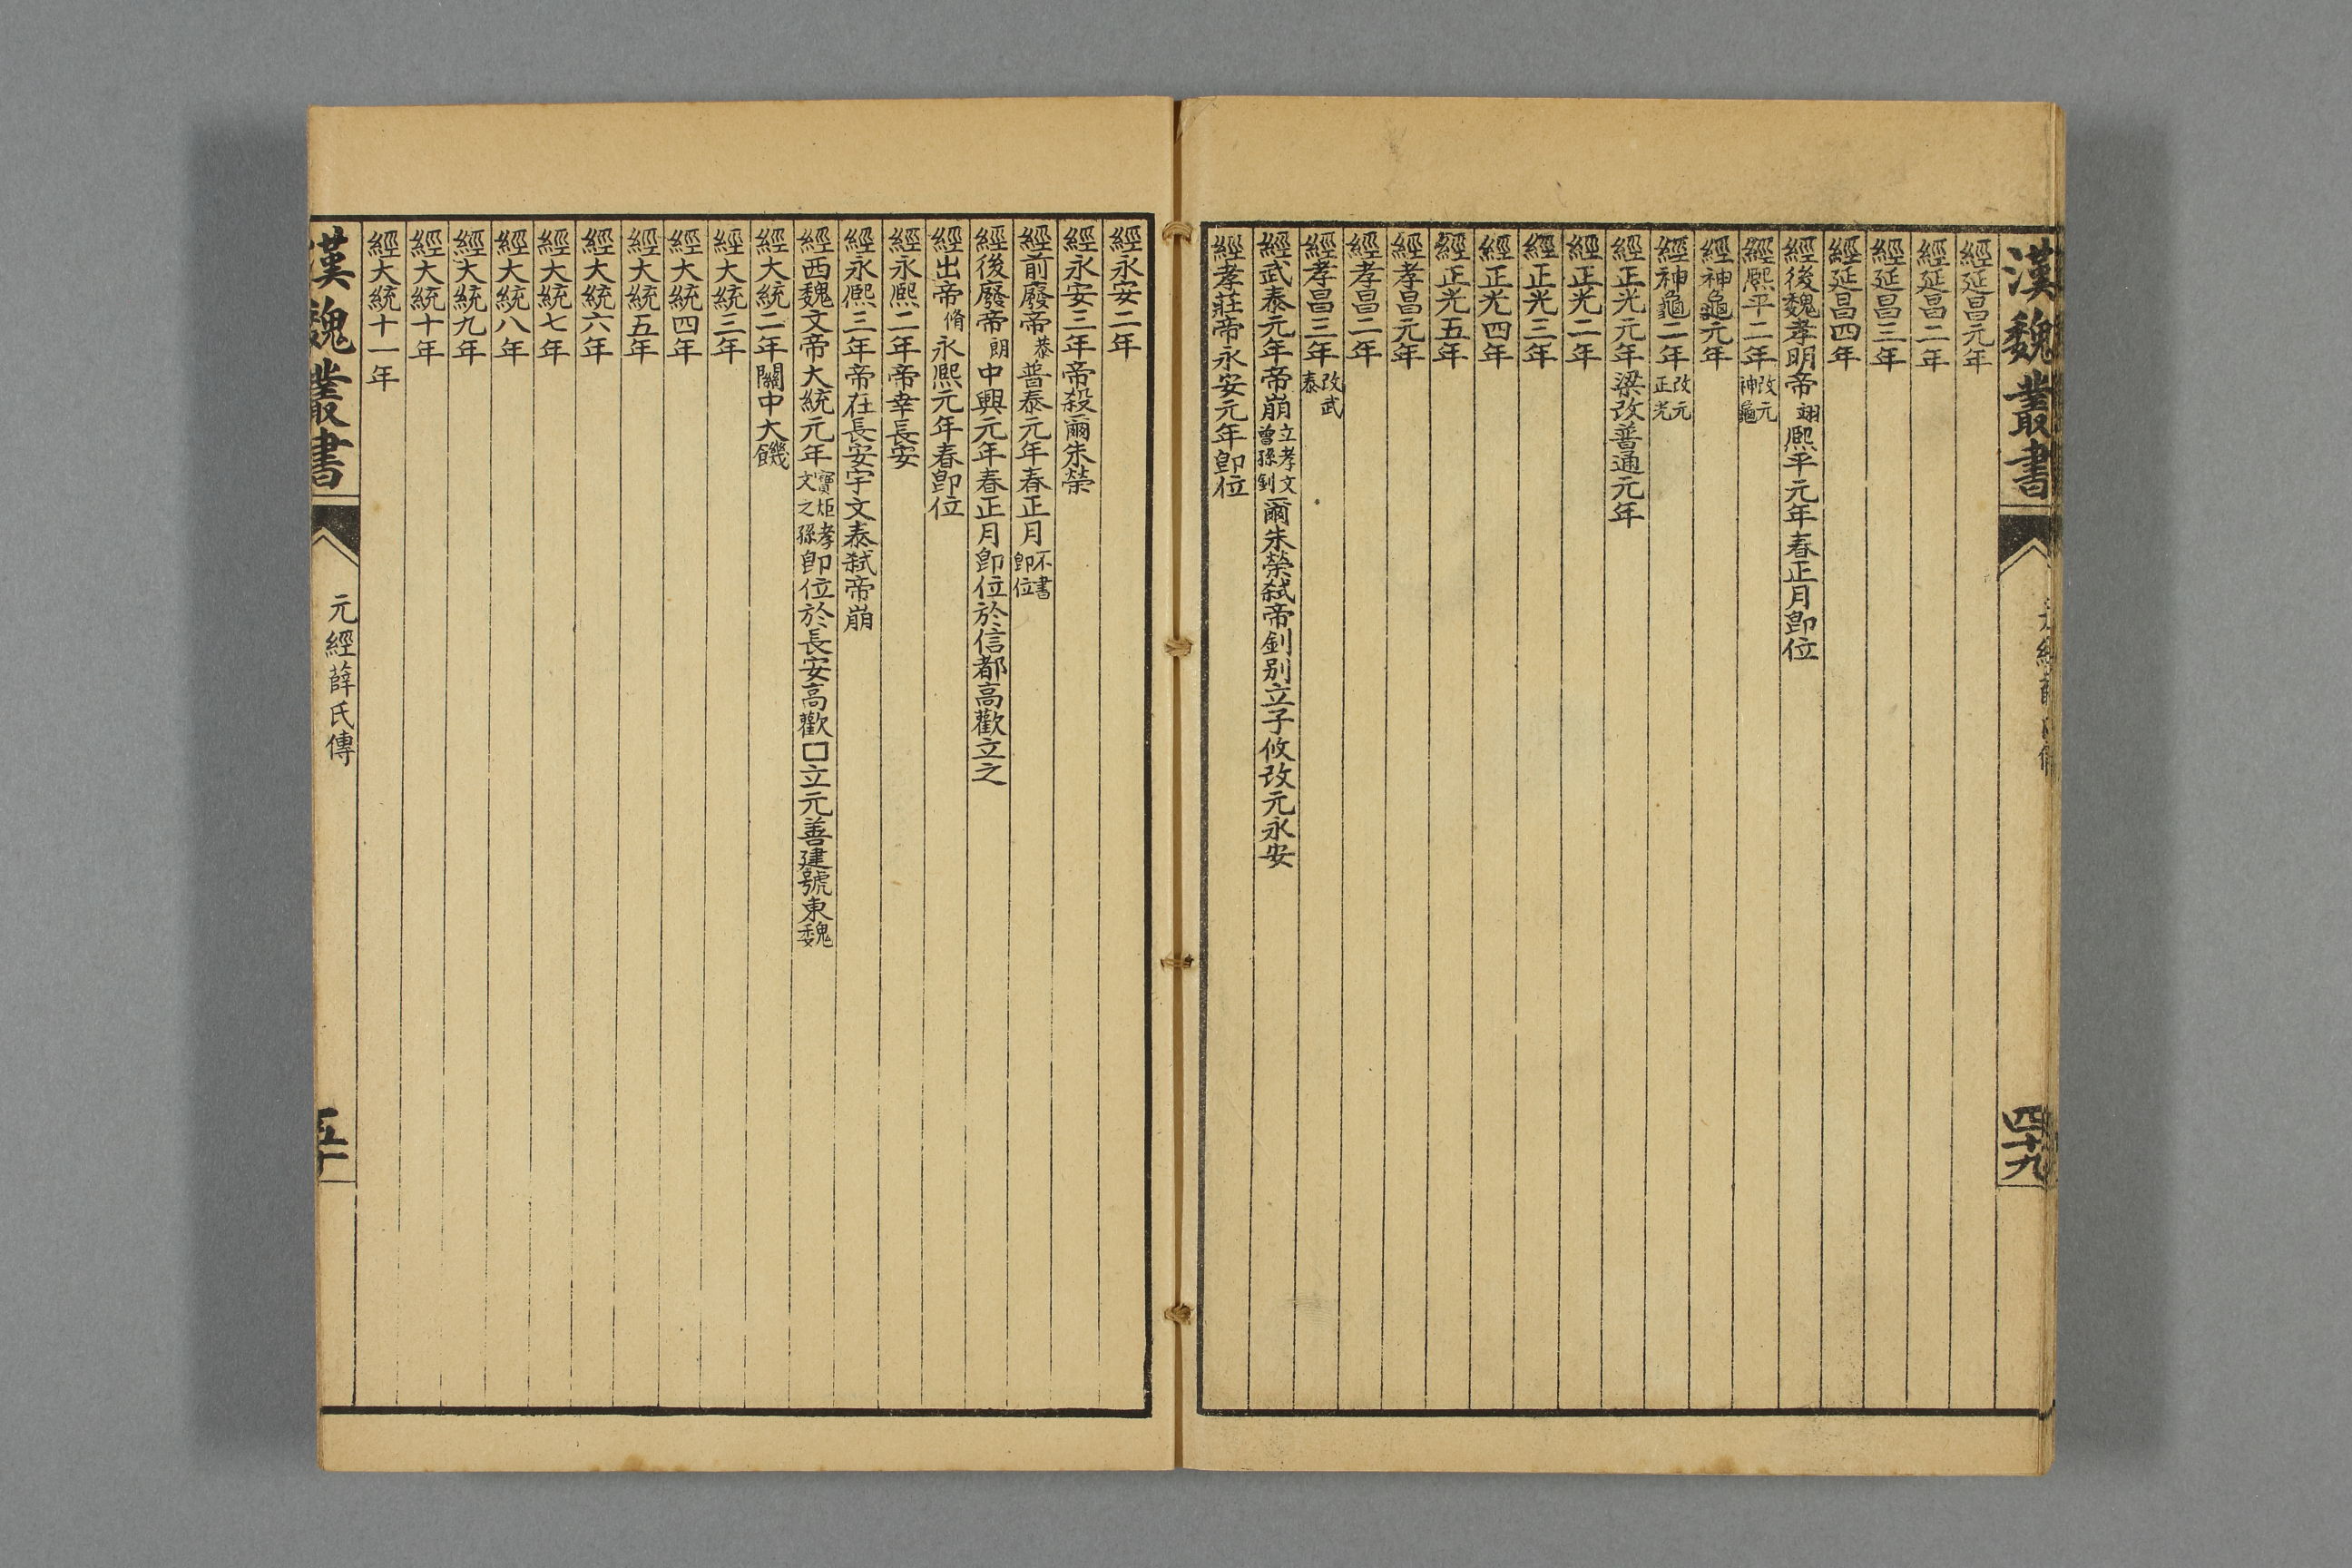 漢魏叢書
四十九
經延昌元年
經延昌二年
經延昌三年
經延昌四年
經後魏孝明帝翊熙平元年春正月卽位
經熙平二年改元神龜
經神龜元年
經神龜二年改元正光
經正光元年梁改普通元年
經正光二年
經正光三年
經正光四年
經正光五年
經孝昌元年
經孝昌二年
經孝昌三年改武泰
經武泰元年帝崩立孝文曾孫釗爾朱榮弑帝釗别立子攸改元永安
經孝莊帝永安元年卽位
經永安二年
經永安三年帝殺爾朱榮
經前廢帝恭普泰元年春正月不書卽位
經後廢帝朗中興元年春正月卽位於信都高歡立之
經出帝脩永熙元年春卽位
經永熙二年帝幸長安
經永熙三年帝在長安宇文泰弑帝崩
經西魏文帝大統元年寶炬孝文之孫卽位於長安高歡囗立元善建號東魏
經大統二年關中大饑
經大統三年
經大統四年
經大統五年
經大統六年
經大統七年
經大統八年
經大統九年
經大統十年
經大統十一年
漢魏叢書
元經薛氏傳
五十